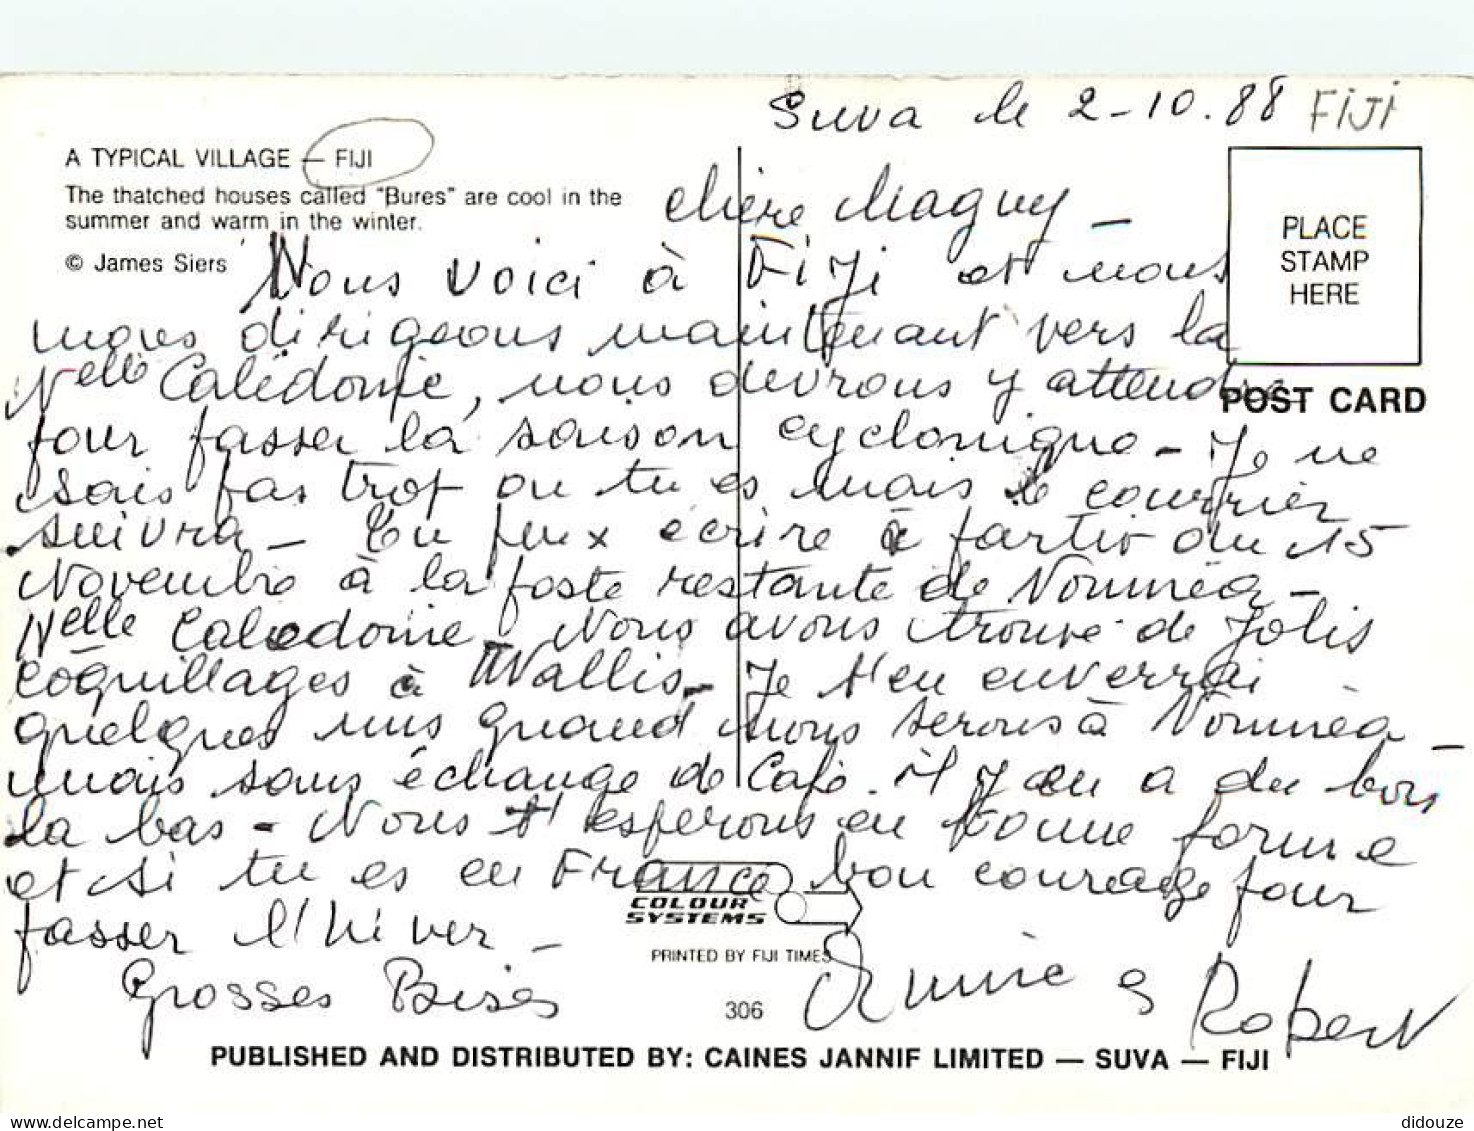 Suva le 2-10.88 FIJI
A TYPICAL VILLAGE — FIJI
The thatched houses called "Bures" are cool in the
summer and warm in the winter.
© James Siers
PLACE
STAMP
HERE
POST CARD
chère Maguy -
Nous voici à FiJi et nous
nous dirigeons maintenant vers la
Nelle Calédonie, nous devrons y attendre
pour passer la saison cyclonique - Je ne
sais pas trop ou tu es mais le courrier
suivra - Tu peux écrire à partir du 15
Novembre à la poste restante de Nouméa -
Nelle Calédonie. Nous avons trouvé de Jolis
coquillages à Wallis - Je t'en enverrai
quelques uns quand nous serons à Nouméa -
mais sans échange de Café. il y en a du bon
la bas - Nous t'esperons en bonne forme
et si tu es en France bon courage pour
passer l'hiver -
Grosses Bises
Annie & Robert
COLOUR
SYSTEMS
PRINTED BY FIJI TIMES
306
PUBLISHED AND DISTRIBUTED BY: CAINES JANNIF LIMITED — SUVA — FIJI
delcampe.net
didouze